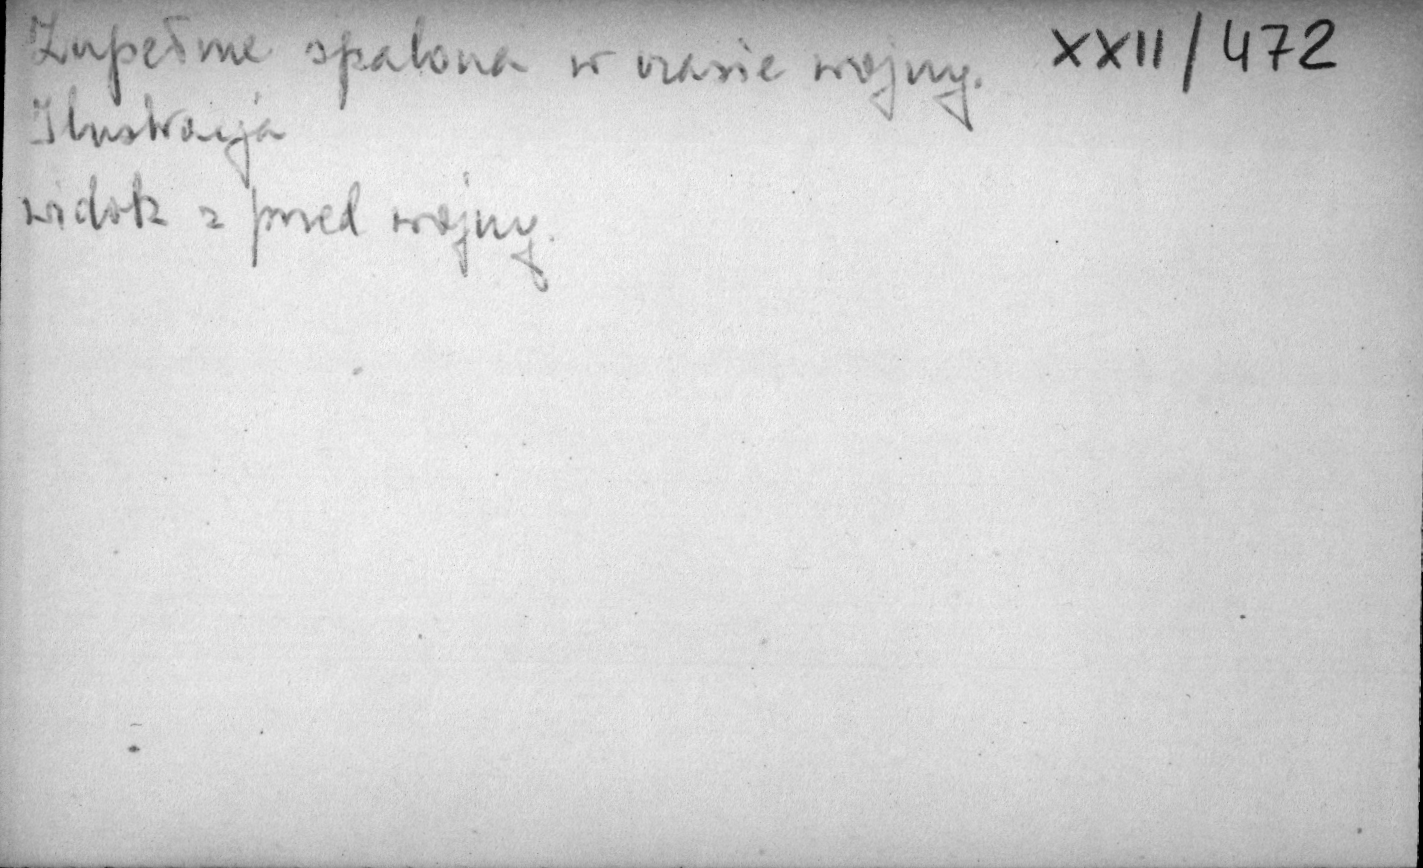 Zupełnie spalona w czasie wojny. XXII/472
Ilustracja
widok z przed wojny.